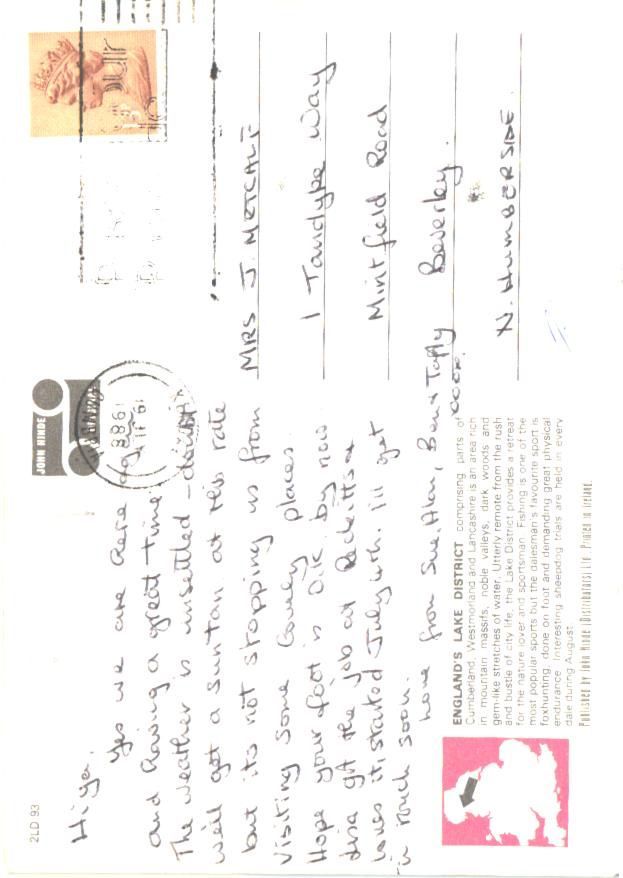 2LD 93
Hiya.
Yes we are here again
and having a great time.
The weather is unsettled - doubt
we'll get a suntan at this rate
but its not stopping us from
visiting some lovely places.
Hope your foot is O.K. by now
Lisa got the job at Recketts &
loves it, started July 4th. Ill get
in touch soon.
love from Sue, Alan, Ben & Taffy
xxxx
JOHN HINDE
1988
MRS J. METCALF
1 Tandyke Way
Mintfield Road
Beverley.
N. HUMBERSIDE.
ENGLAND'S LAKE DISTRICT comprising parts of
Cumberland, Westmorland and Lancashire is an area rich
in mountain massifs, noble valleys, dark woods and
gem-like stretches of water. Utterly remote from the rush
and bustle of city life, the Lake District provides a retreat
for the nature lover and sportsman. Fishing is one of the
most popular sports but the dalesman's favourite sport is
foxhunting, done on foot and demanding great physical
endurance. Interesting sheepdog trials are held in every
dale during August.
Published by John Hinde (Distributors) Ltd. Printed in Ireland.